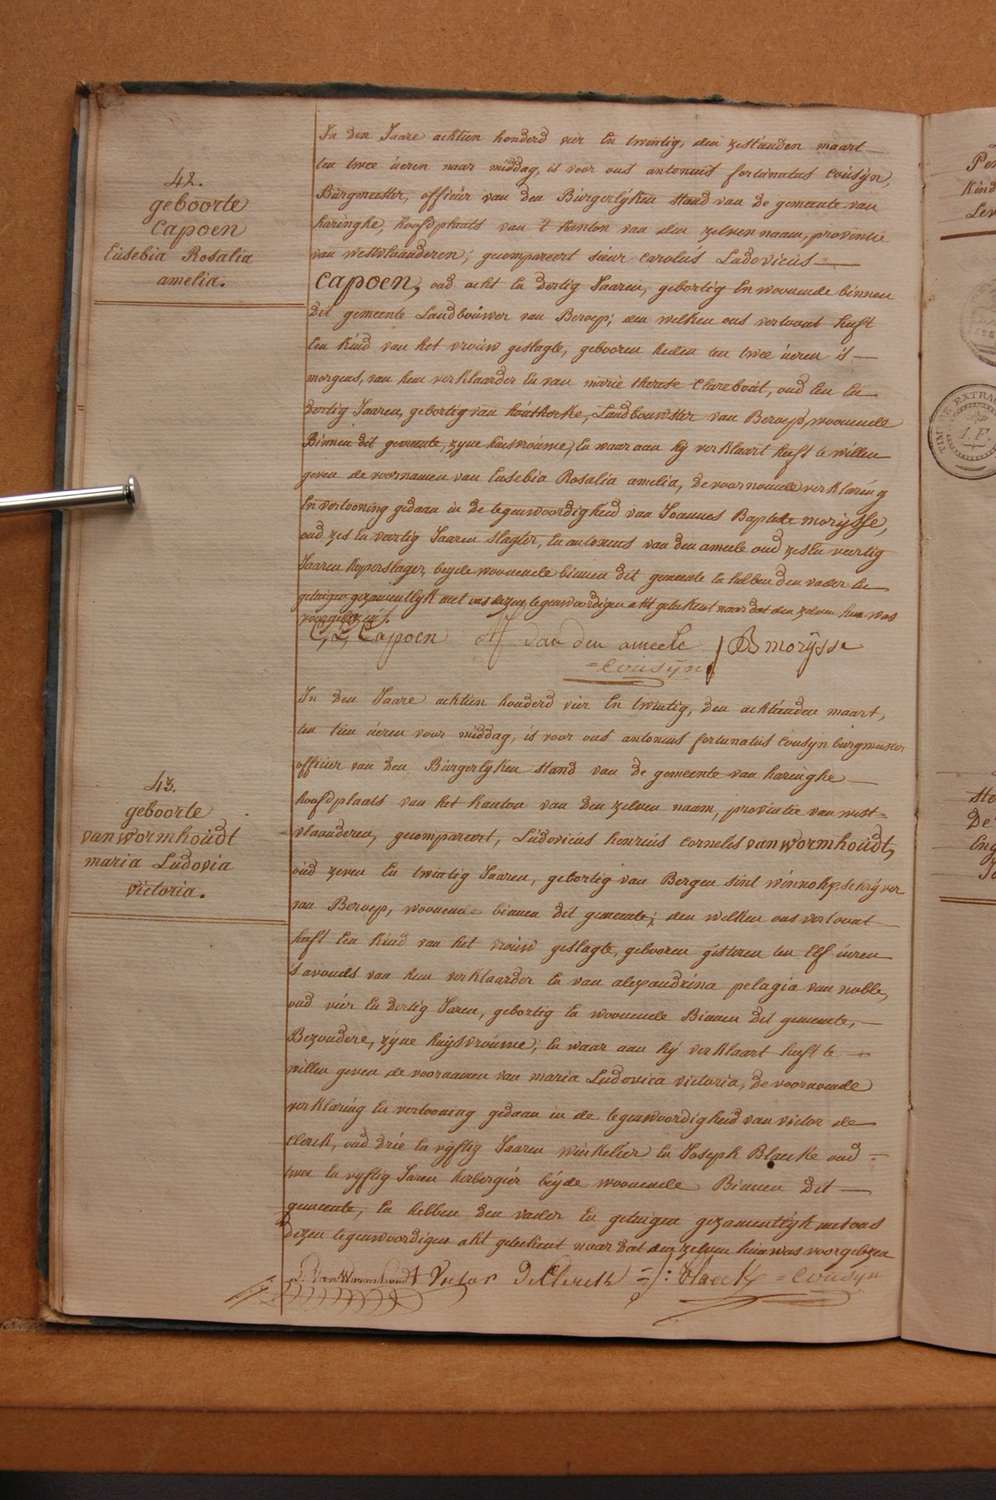 42.
geboorte
Capoen
Eusebia Rosalia
amelia.
In den Jaare achtien honderd vier En twintig, den zestienden maart
ten twee ueren naar middag, is voor ons antonius fortunatus cousyn,
Burgmeester, officier van den Burgerlyken stand van de gemeente van
haringhe, hoofdplaats van 't kanton van den zelven naam, provintie
van westvlaanderen; gecompareert sieur carolus Ludovicus
Capoen, oud acht En dertig Jaaren, gebortig En woonende binnen
dit gemeente Landbouwer van Beroep; den welken ons vertoont heeft
Een kind van het vrouw geslagte, gebooren heden ten twee ueren 's
morgens, van hem verklaarder En van marie therese Clarebout, oud Een En
dertig Jaaren, gebortig van houthorke, Landbouwster van Beroep, woonende
Binnen dit gemeente, zyne huisvrouwe; En waar aan hy verklaart heeft te willen
geven de voornamen van Eusebia Rosalia amelia, de voornoemde verklaring
En vertooning gedaan in de tegenwoordigheid van Joannes Baptiste morysse,
oud zes En veertig Jaaren slagter, En antonius van den ameele oud zes En veertig
Jaaren koperslager, beyde woonende binnen dit gemeente En hebben den vader En
getuigen gezamentlyk met ons dezen tegenwoordigen akt geteekent naar dat den zelven hun was
voorgelezen.
C, L, Capoen van den ameele J B morysse
= Cousyn
43.
geboorte
van wormhoudt
maria Ludovia
victoria.
In den Jaare achtien honderd vier En twintig, den achtienden maart,
ten tien ueren voor middag, is voor ons antonius fortunatus cousyn burgmeester
officier van den Burgerlyken stand van de gemeente van haringhe
hoofdplaats van het kanton van den zelven naam, provintie van west=
vlaanderen, gecompareert, Ludovicus henricus cornelis van wormhoudt,
oud zeven En twintig Jaaren, gebortig van Bergen sint winnokx, schryver
van Beroep, woonende binnen dit gemeente; den welken ons vertoont
heeft Een kind van het vrouw geslagte, gebooren gisteren ten Elf ueren
's avonds van hem verklaarder En van alexandrina pelagia van noble,
oud vier En dertig Jaren, gebortig En woonende Binnen dit gemeente,
Bezondere, zyne huysvrouwe; En waar aan hy verklaart heeft te
willen geven de voornamen van maria Ludovica victoria, de voornoemde
verklaring En vertooning gedaan in de tegenwoordigheid van victor de
clerck, oud drie En vyftig Jaaren winkelier En Joseph Blaeke oud
twee En vyftig Jaren herbergier beyde woonende Binnen dit
gemeente, En hebben den vader En getuigen gezamentlyk met ons
dezen tegenwoordigen akt geteekent naar dat den zelven hun was voorgelezen
Van Wormhoudt Victor DeClerck = Cousyn
TIMBRE EXTRA
1.F.